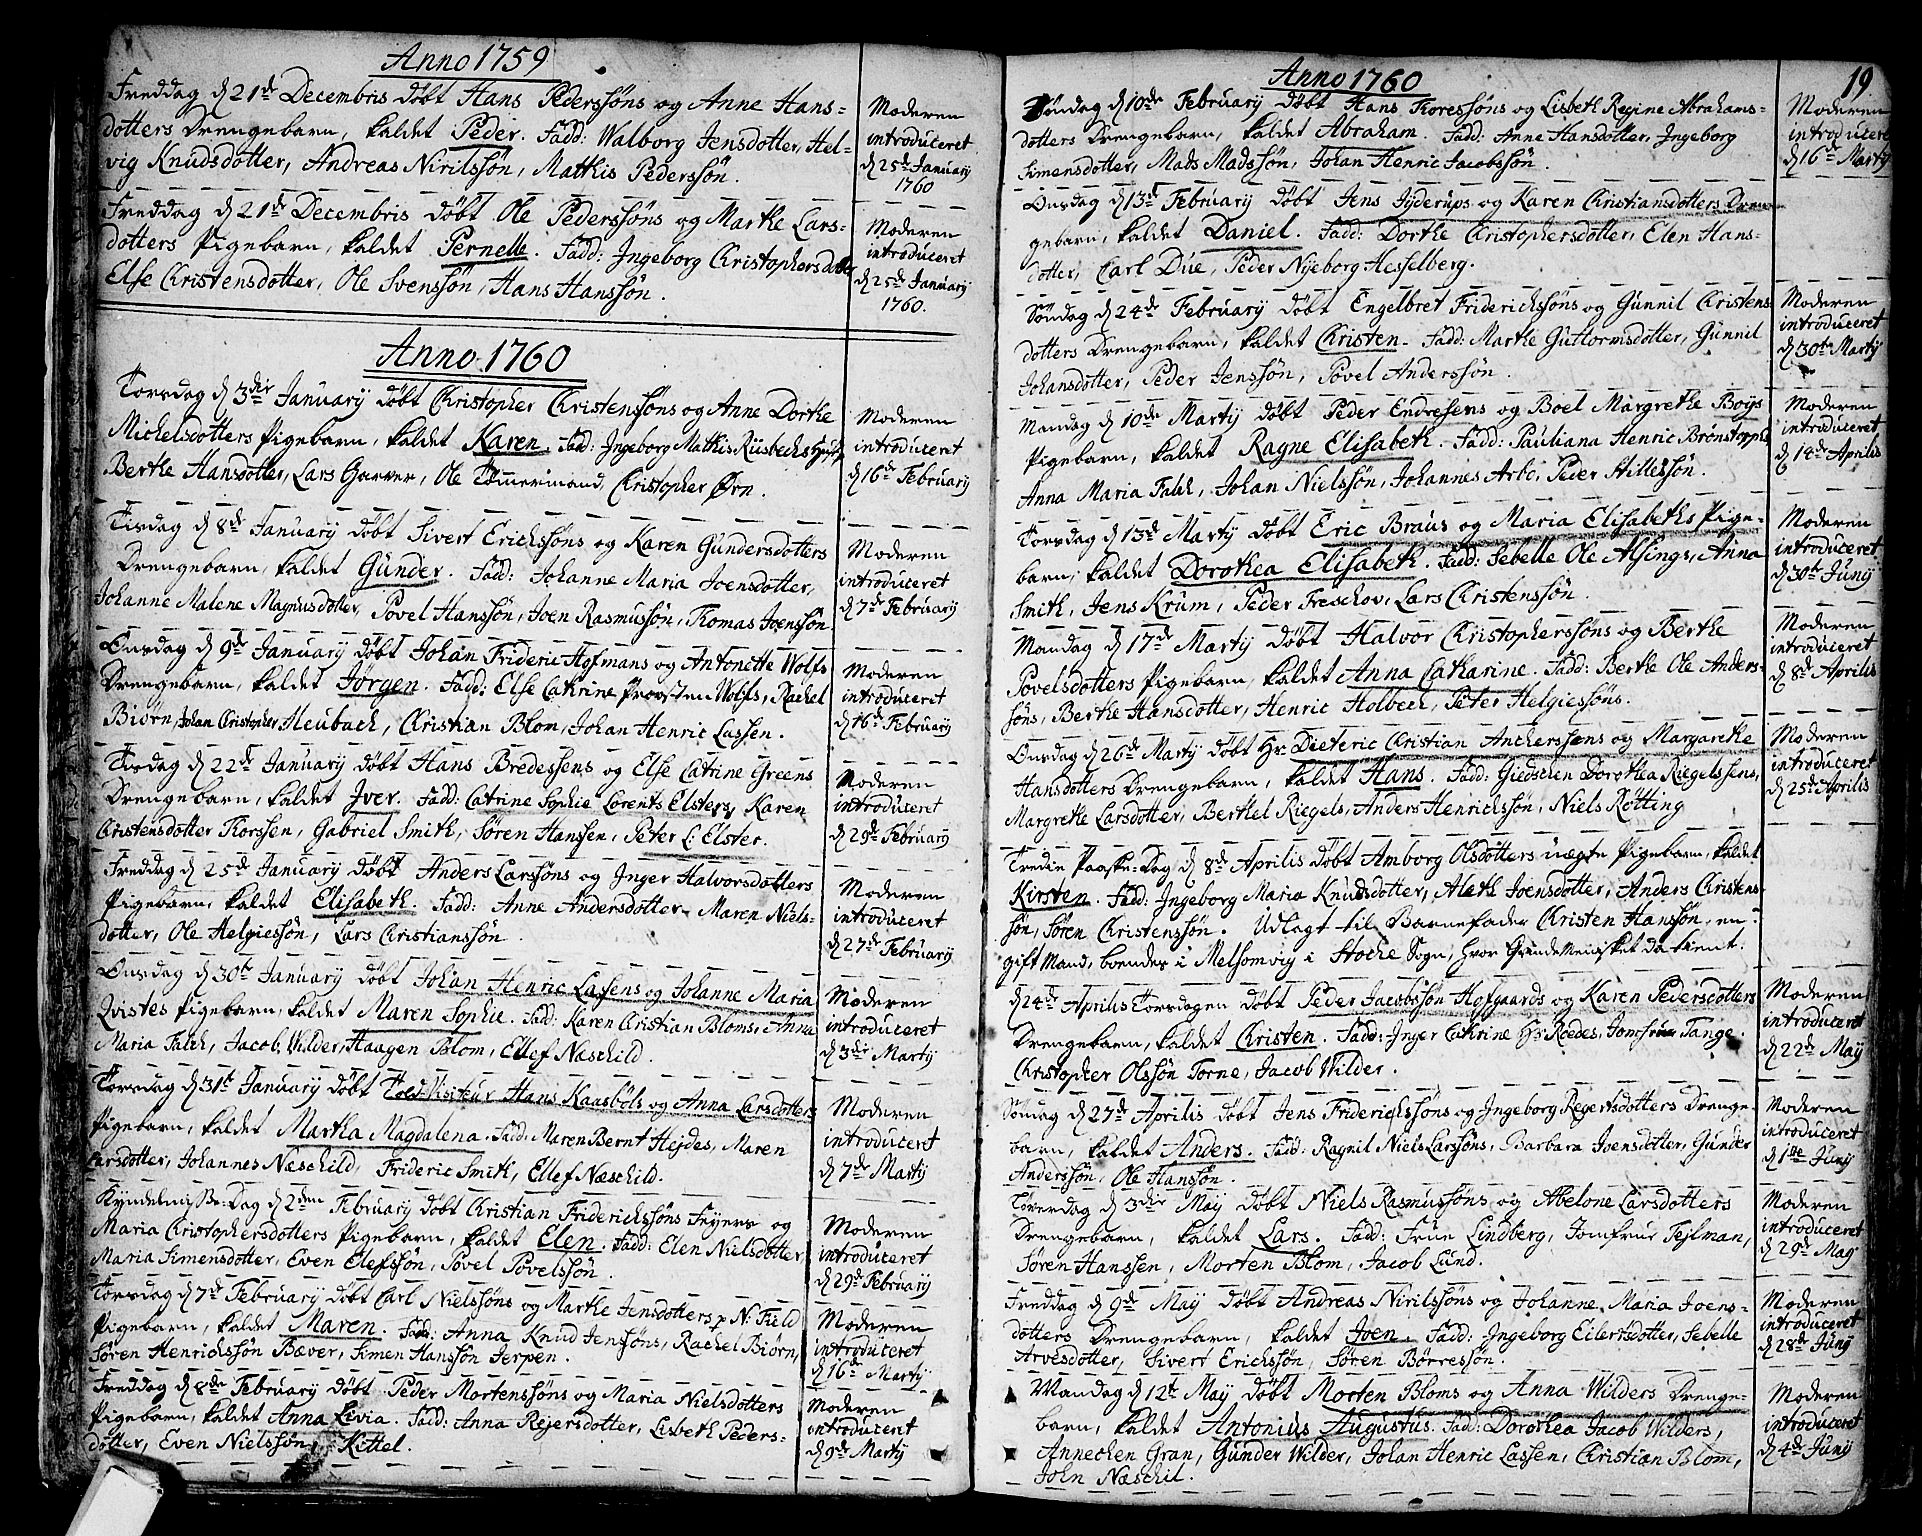 Anno 1759
Freddag d 21de Decembris døbt Hans Pederssøns og Anne Hans-
dotters Drengebarn, kaldet Peder. Fadd: Walborg Jensdotter, Hel-
vig Knudsdotter, Andreas Nirilssøn, Mathis Pederssøn.
Moderen
introduceret
d 25de January
1760
Freddag d 21de Decembris døbt Ole Pederssøns og Marthe Lars-
dotters Pigebarn, kaldet Pernelle. Fadd: Ingeborg Christophersdotter
Else Christensdotter, Ole Svenssøn, Hans Hanssøn.
Moderen
introduceret
d 25de January
1760.
Anno 1760
Torsdag d 3die January døbt Christopher Christenssøns og Anne Dorthe
Michelsdotters Pigebarn, kaldet Karen. Fad: Ingeborg Mathis Rusbechs
Berthe Hansdotter, Lars Garver, Ole Tømmermand, Christopher Ørn.
Moderen
introduceret
d 16de February
Tisdag d 8de January døbt Sivert Erichssøns og Karen Gundersdotters
Drengebarn, kaldet Gunder. Fadd: Johanne Maria Joensdotter,
Johanne Malene Magnusdotter, Povel Hanssøn, Joen Rasmussøn, Thomas Joenssøn.
Moderen
introduceret
d 7de February
Onsdag d 9de January døbt Johan Frideric Hofmans og Antonette Wolfs
Drengebarn, kaldet Jørgen. Fadd: Else Cathrine Provsten Wolfs, Rachel
Biørn, Johan Christopher Heubach, Christian Blom, Johan Henric Lassen.
Moderen
introduceret
d 16de February
Tisdag d 22de January døbt Hans Bredessens og Else Catrine Greens
Drengebarn, kaldet Iver. Fadd: Catrine Sophie Lorents Elsters, Karen
Christensdotter Thorssen, Gabriel Smith, Søren Hanssen, Peter L: Elster.
Moderen
introduceret
d 29de February
Freddag d 25de January døbt Anders Larssøns og Inger Halvorsdotters
Pigebarn, kaldet Elisabeth. Fadd: Anne Andersdotter, Maren Niels-
dotter, Ole Helgiessøn, Lars Christianssøn.
Moderen
introduceret
d 27de February
Onsdag d 30te January døbt Johan Henric Lassens og Johanne Maria
Qvistes Pigebarn, kaldet Maren Sophie. Fadd: Karen Christian Bloms, Anna
Maria Falch, Jacob Wilder, Haagen Blom, Ellef Næschild.
Moderen
introduceret
d 3die Martij
Torsdag d 31te January døbt Told-Visiteur Hans Kaasbøls og Anna Larsdotters
Pigebarn, kaldet Martha Magdalena. Fadd: Maren Bernt Hejdes, Maren
Larsdotter, Johannes Næschild, Frideric Smith, Ellef Næschild.
Moderen
introduceret
d 7de Martij
Kyndelmisse-Dag d 2den February døbt Christian Friderichssøns Fryers og
Maria Christophersdotters Pigebarn, kaldet Elen. Fadd: Elen Nielsdotter,
Maria Simensdotter, Even Elefssøn, Povel Povelssøn.
Moderen
introduceret
d 29de February
Torsdag d 7de February døbt Carl Nielssøns og Marthe Jensdotters p N: Field
Pigebarn, kaldet Maren. Fadd: Anna Knud Jenssøns, Rachel Biørn,
Søren Henrichssøn Bæver, Simen Hanssøn Jerpen.
Moderen
introduceret
d 16de Martij
Freddag d 8de February døbt Peder Mortenssøns og Maria Nielsdotters
Pigebarn, kaldet Anna Livia. Fadd: Anna Rejersdotter, Lisbeth Peders-
dotter, Even Nielssøn, Kittel.
Moderen
introduceret
d 9de Martij
Anno 1760
19
Søndag d 10de February døbt Hans Thoressøns og Lisbeth Regine Abrahams-
dotters Drengebarn, kaldet Abraham. Fadd: Anne Hansdotter, Ingeborg
Simensdotter, Mads Madssøn, Johan Henric Jacobssøn.
Moderen
introduceret
d 16de Martij
Onsdag d 13de February døbt Jens Jyderups og Karen Christiansdotters Dren-
gebarn, kaldet Daniel. Fadd: Dorthe Christophersdotter, Elen Hans-
dotter, Carl Due, Peder Nyeborg Hesselberg.
Søndag d 24de February døbt Engelbret Friderichssøns og Gunnil Christens-
dotters Drengebarn, kaldet Christen. Fadd: Marthe Guttormsdotter, Gunnil
Johansdotter, Peder Jenssøn, Povel Anderssøn.
Moderen
introduceret
d 30te Martij
Mandag d 10de Martij døbt Peder Endresens og Boel Margrethe Boijs
Pigebarn, kaldet Ragne Elisabeth. Fadd: Pauliana Henric Brønstorphs,
Anna Maria Falch, Johan Nielssøn, Johannes Arbo, Peder Hillessøn.
Moderen
introduceret
d 14de Aprilis
Torsdag d 13de Martij døbt Eric Braus og Maria Elisabeths Pige-
barn, kaldet Dorothea Elisabeth. Fadd: Sebelle Ole Alsings, Anna
Smith, Jens Krum, Peder Freschov, Lars Christenssøn.
Moderen
introduceret
d 30te Junij
Mandag d 17de Martij døbt Halvor Christopherssøns og Berthe
Povelsdotters Pigebarn, kaldet Anna Catharine. Fadd: Berthe Ole Anders-
søns, Berthe Hansdotter, Henric Holbech, Peter Helgiessøns.
Moderen
introduceret
d 8de Aprilis
Onsdag d 26de Martij døbt Hr: Dieteric Christian Ancherssens og Margarethe
Hansdotters Drengebarn, kaldet Hans. Fadd: Giedschen Dorothea Riegelssens,
Margrethe Larsdotter, Berthel Riegels, Anders Henrichssøn, Niels Røtting
Moderen
introduceret
d 25de Aprilis
Tredie Paaske-Dag d 8de Aprilis døbt Amborg Olsdotters uægte Pigebarn, kaldet
Kirsten. Fadd: Ingeborg Maria Knudsdotter, Aleth Joensdotter, Anders Christens-
søn, Søren Christenssøn. Udlagt til Barnefader Christen Hanssøn, en
gift Mand, boendes i Melsomvig i Stocke Sogn, hvor Qvindemennisket da tient.
d 24de Aprilis Torsdagen døbt Peder Jacobssøn Hofgaards og Karen Pedersdotters
Drengebarn, kaldet Christen. Fadd: Inger Cathrine Hr: Roedes, Jomfrue Tange.
Christopher Olssøn Torne, Jacob Wilder.
Moderen
introduceret
d 22de Maij
Søndag d 27de Aprilis døbt Jens Friderichssøns og Ingeborg Regertsdotters Drenge-
barn, kaldet Anders. Fadd: Ragnil Niels Larssøns, Barbara Joensdotter, Gunder
Anderssøn, Ole Hanssøn.
Moderen
introduceret
d 1ste Junij
Løverdag d 3die Maij døbt Niels Rasmussøns og Abelone Larsdotters
Drengebarn, kaldet Lars. Fadd: Frue Lindberg, Jomfrue Fejlman,
Søren Hanssen, Morten Blom, Jacob Lund.
Moderen
introduceret
d 29de Maij
Freddag d 9de Maij døbt Andreas Nirilssøns og Johanne Maria Joens-
dotters Drengebarn, kaldet Joen. Fadd: Ingeborg Eilertsdotter, Sebelle
Arvesdotter, Sivert Erichssøn, Søren Børressøn.
Moderen
introduceret
d 28de Junij
Mandag d 12te Maij døbt Morten Bloms og Anna Wilders Drenge-
barn, kaldet Antonius Augustus. Fadd: Dorothea Jacob Wilders,
Annechen Gran, Gunder Wilder, Johan Henric Lassen, Christian Blom,
John Næschil.
Moderen
introduceret
d 4de Junij